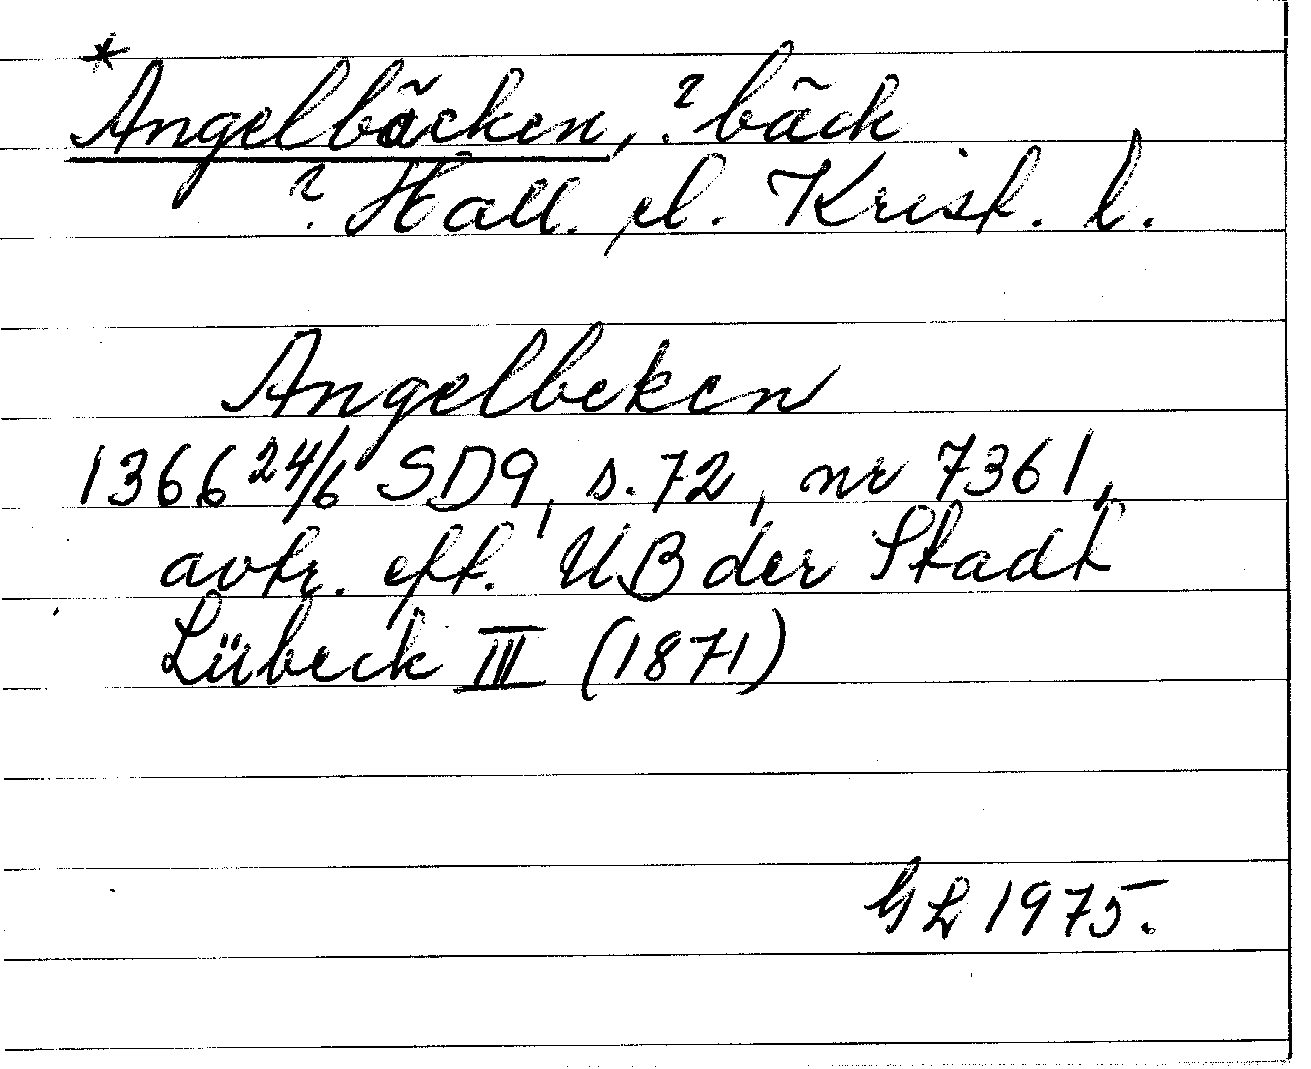 *
Angelbäcken, ? bäck
? Hall. el. Krist. l.
Angelbeken
1366 24/6 SD9, s. 72, nr 7361,
avtr. eft. UB der Stadt
Lübeck III (1871)
GL 1975.